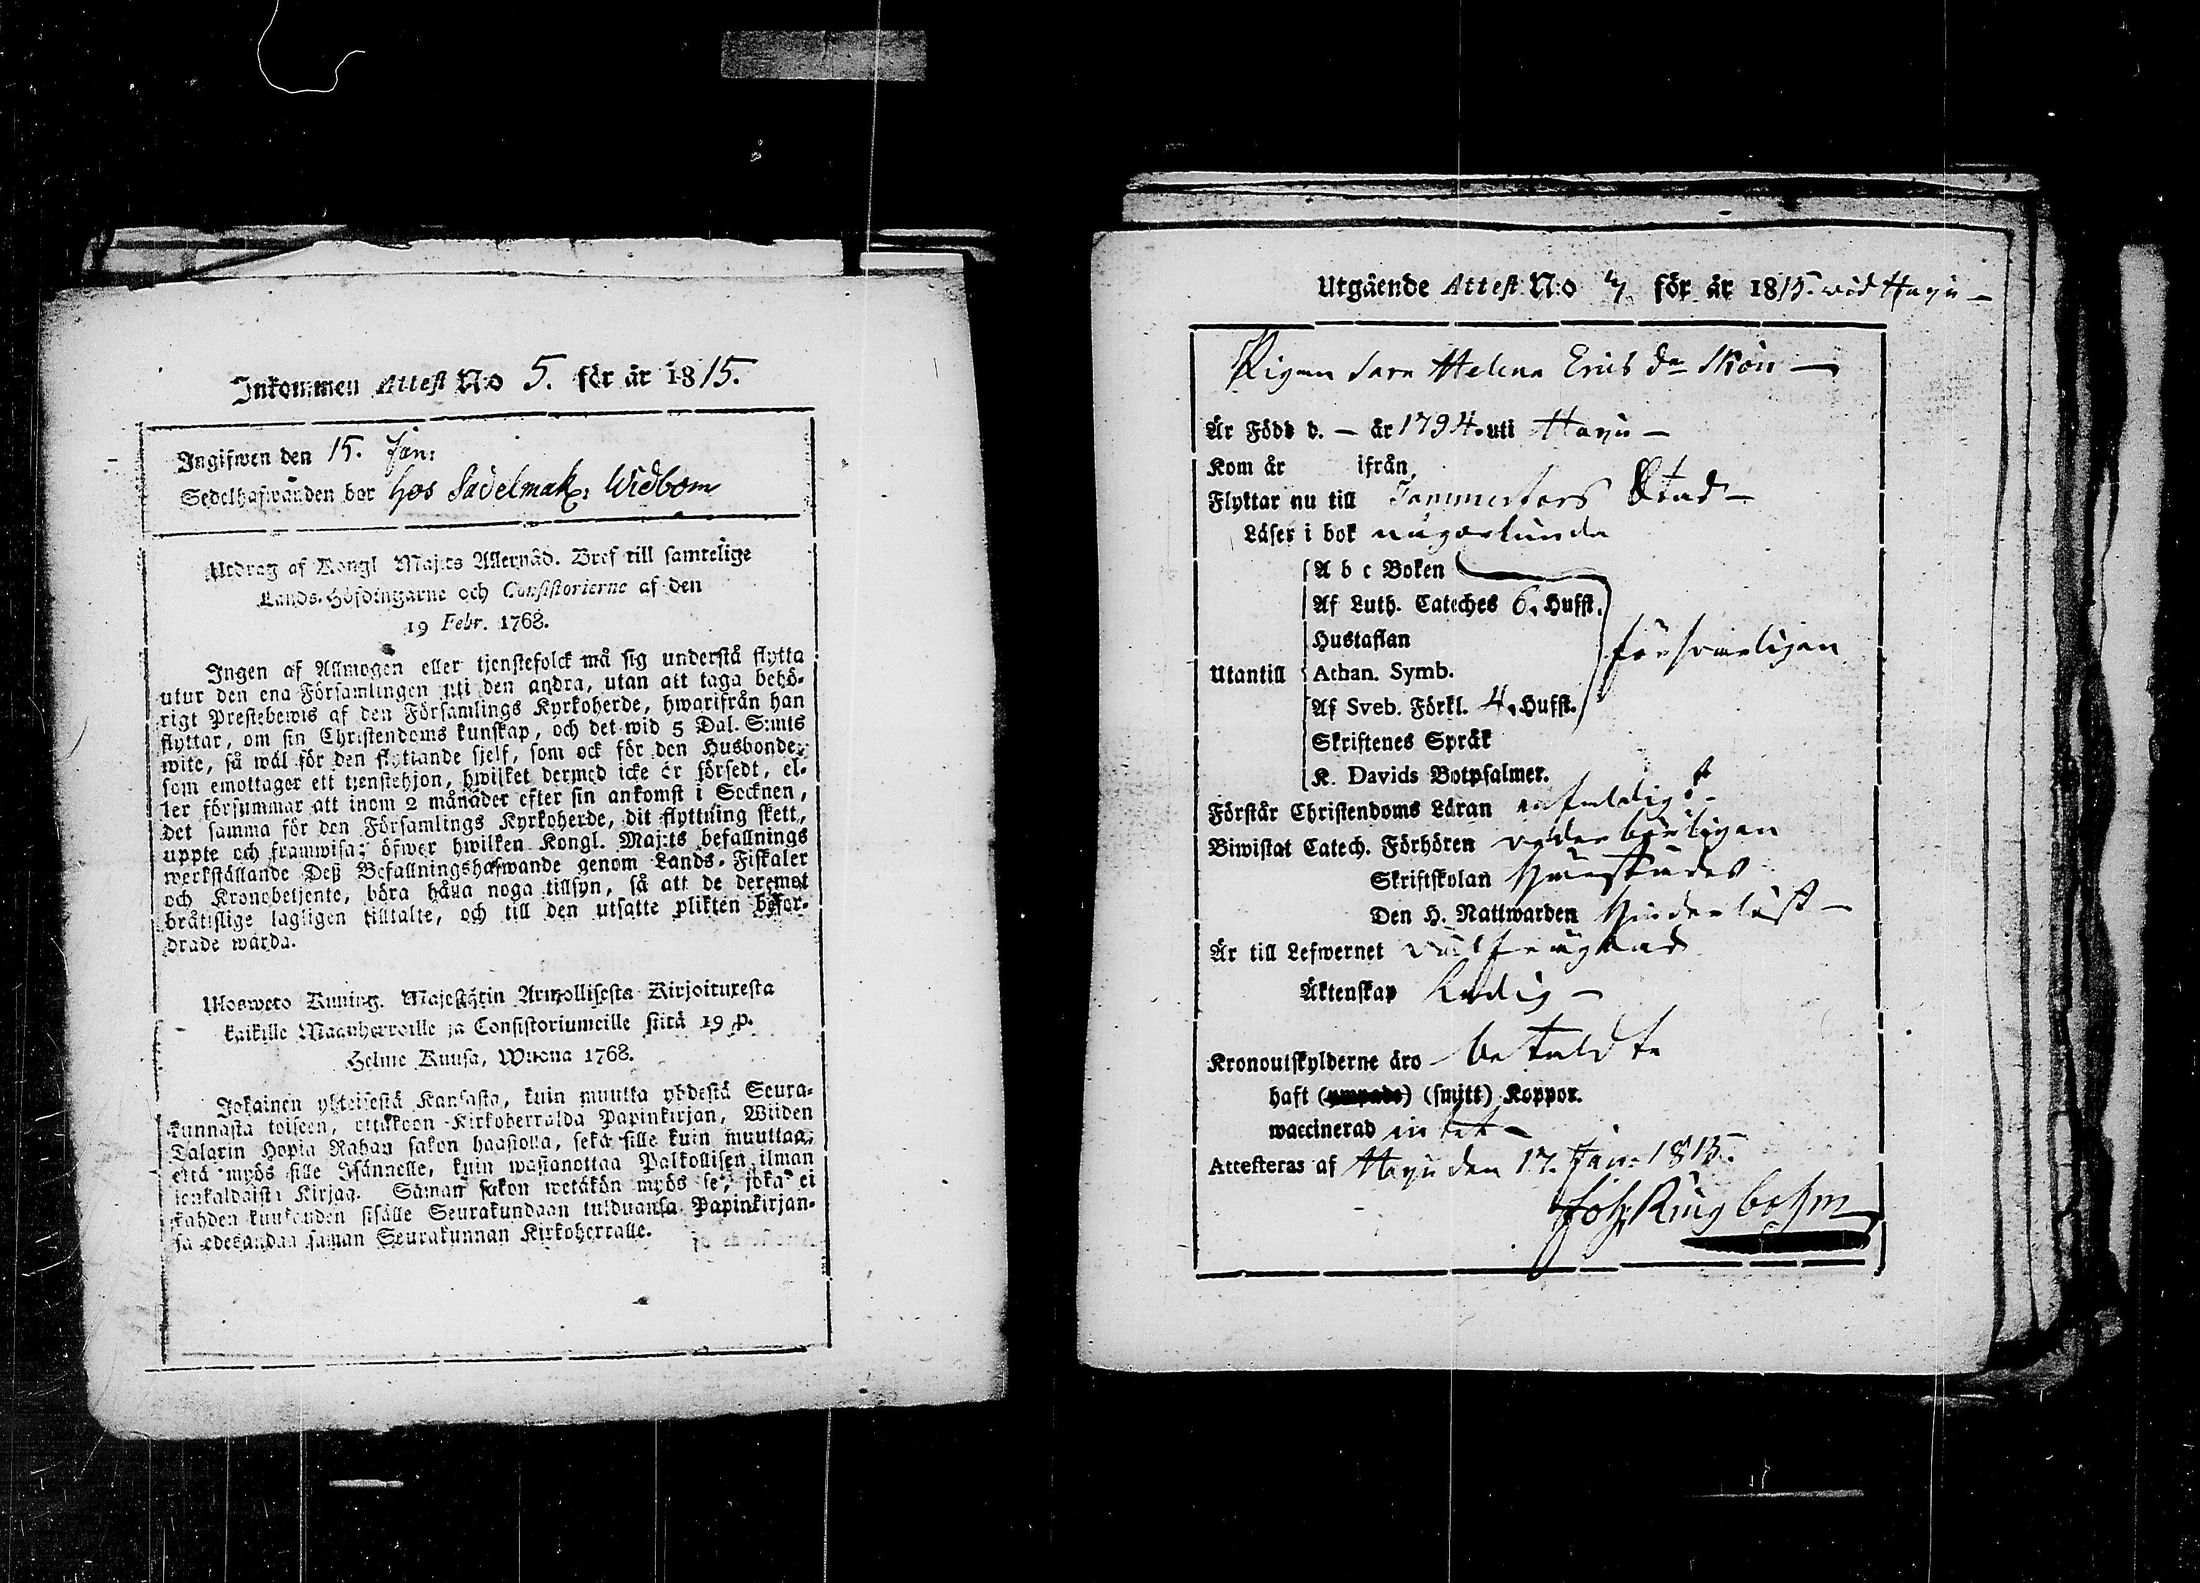 Inkommen Attest N:o 5. för år 1815.
Ingifwen den 15. Jan:
Sedelhafwanden bor hos Sadelmak: Widbom
Utdrag af Kongl Maj:ts Allernåd. Bref till samtelige
Lands-Höfdingarne och Consistorierne af den
19 Febr. 1768.
Ingen af Allmogen eller tjenstefolck må sig understå flytta
utur den ena Församlingen uti den andra, utan att taga behö-
rigt Prestebewis af den Församlings Kyrkoherde, hwarifrån han
flyttar, om sin Christendoms kunskap, och det wid 5 Dal. S:mts
wite, så wäl för den flyttande sjelf, som ock för den Husbonde,
som emottager ett tjenstehjon, hwilket dermed icke är försedt, el-
ler försummar att inom 2 månader efter sin ankomst i Socknen,
det samma för den Församlings Kyrkoherde, dit flyttning skett,
uppte och framwisa; öfwer hwilken Kongl. Maj:ts befallnings
werkställande Deß Befallningshafwande genom Lands-Fiskaler
och Kronobetjente, böra hålla noga tillsyn, så att de deremot
bråttslige lagligen tilltalte, och till den utsatte plikten befor-
drade warda.
Uloswetö Kuning. Majestätin Armollisesta Kirjoituxesta
kaikille Maanherroille ja Consistoriumeille siitä 19 p.
Helme Kuusa, Wuona 1768.
Jokainen yhteisestä Kansasta, kuin muutta yhdestä Seura-
kunnasta toiseen, ottakoon Kirkoherralda Papinkirjan, Wiiden
Talarin Hopia Rahan sakon haastolla, sekä sille kuin muuttaa,
että myös sille Isännelle, kuin wastanottaa Palkollisen ilman
senkaldaista Kirjaa. Saman sakon wetäkön myös se, joka ei
kahden kuukauden sisälle Seurakundaan tulduansa Papinkirjan-
sa edesandaa saman Seurakunnan Kirkoherralle.
Utgående Attest N:o 4. för år 1815. wid Hagu
Pigan Sara Helena Ericsd:r Skön
Är Född d. — år 1794. uti Hagu
Kom år ifrån
Flyttar nu till Tammerfors Stad
Läser i bok någorlunda
A b c Boken
Af Luth. Cateches 6. Hufst.
Hustaflan
försvarligen
Utantill Athan. Symb.
Af Sveb. Förkl. 4. Hufst.
Skriftenes Språk
K. Davids Botpsalmer.
Förstår Christendoms Läran enfaldigt
Biwistat Catech. Förhören vederbörligen
Skriftskolan
Den H. Nattwarden hinderlöst
Är till Lefwernet välfrägdad
Äktenskap Ledig
Kronoutskylderne äro betaldte
haft (ympade) (smitt) Koppor.
waccinerad intet
Attesteras af Hagu den 17. Jan: 1815.
Joh: Ringbohm